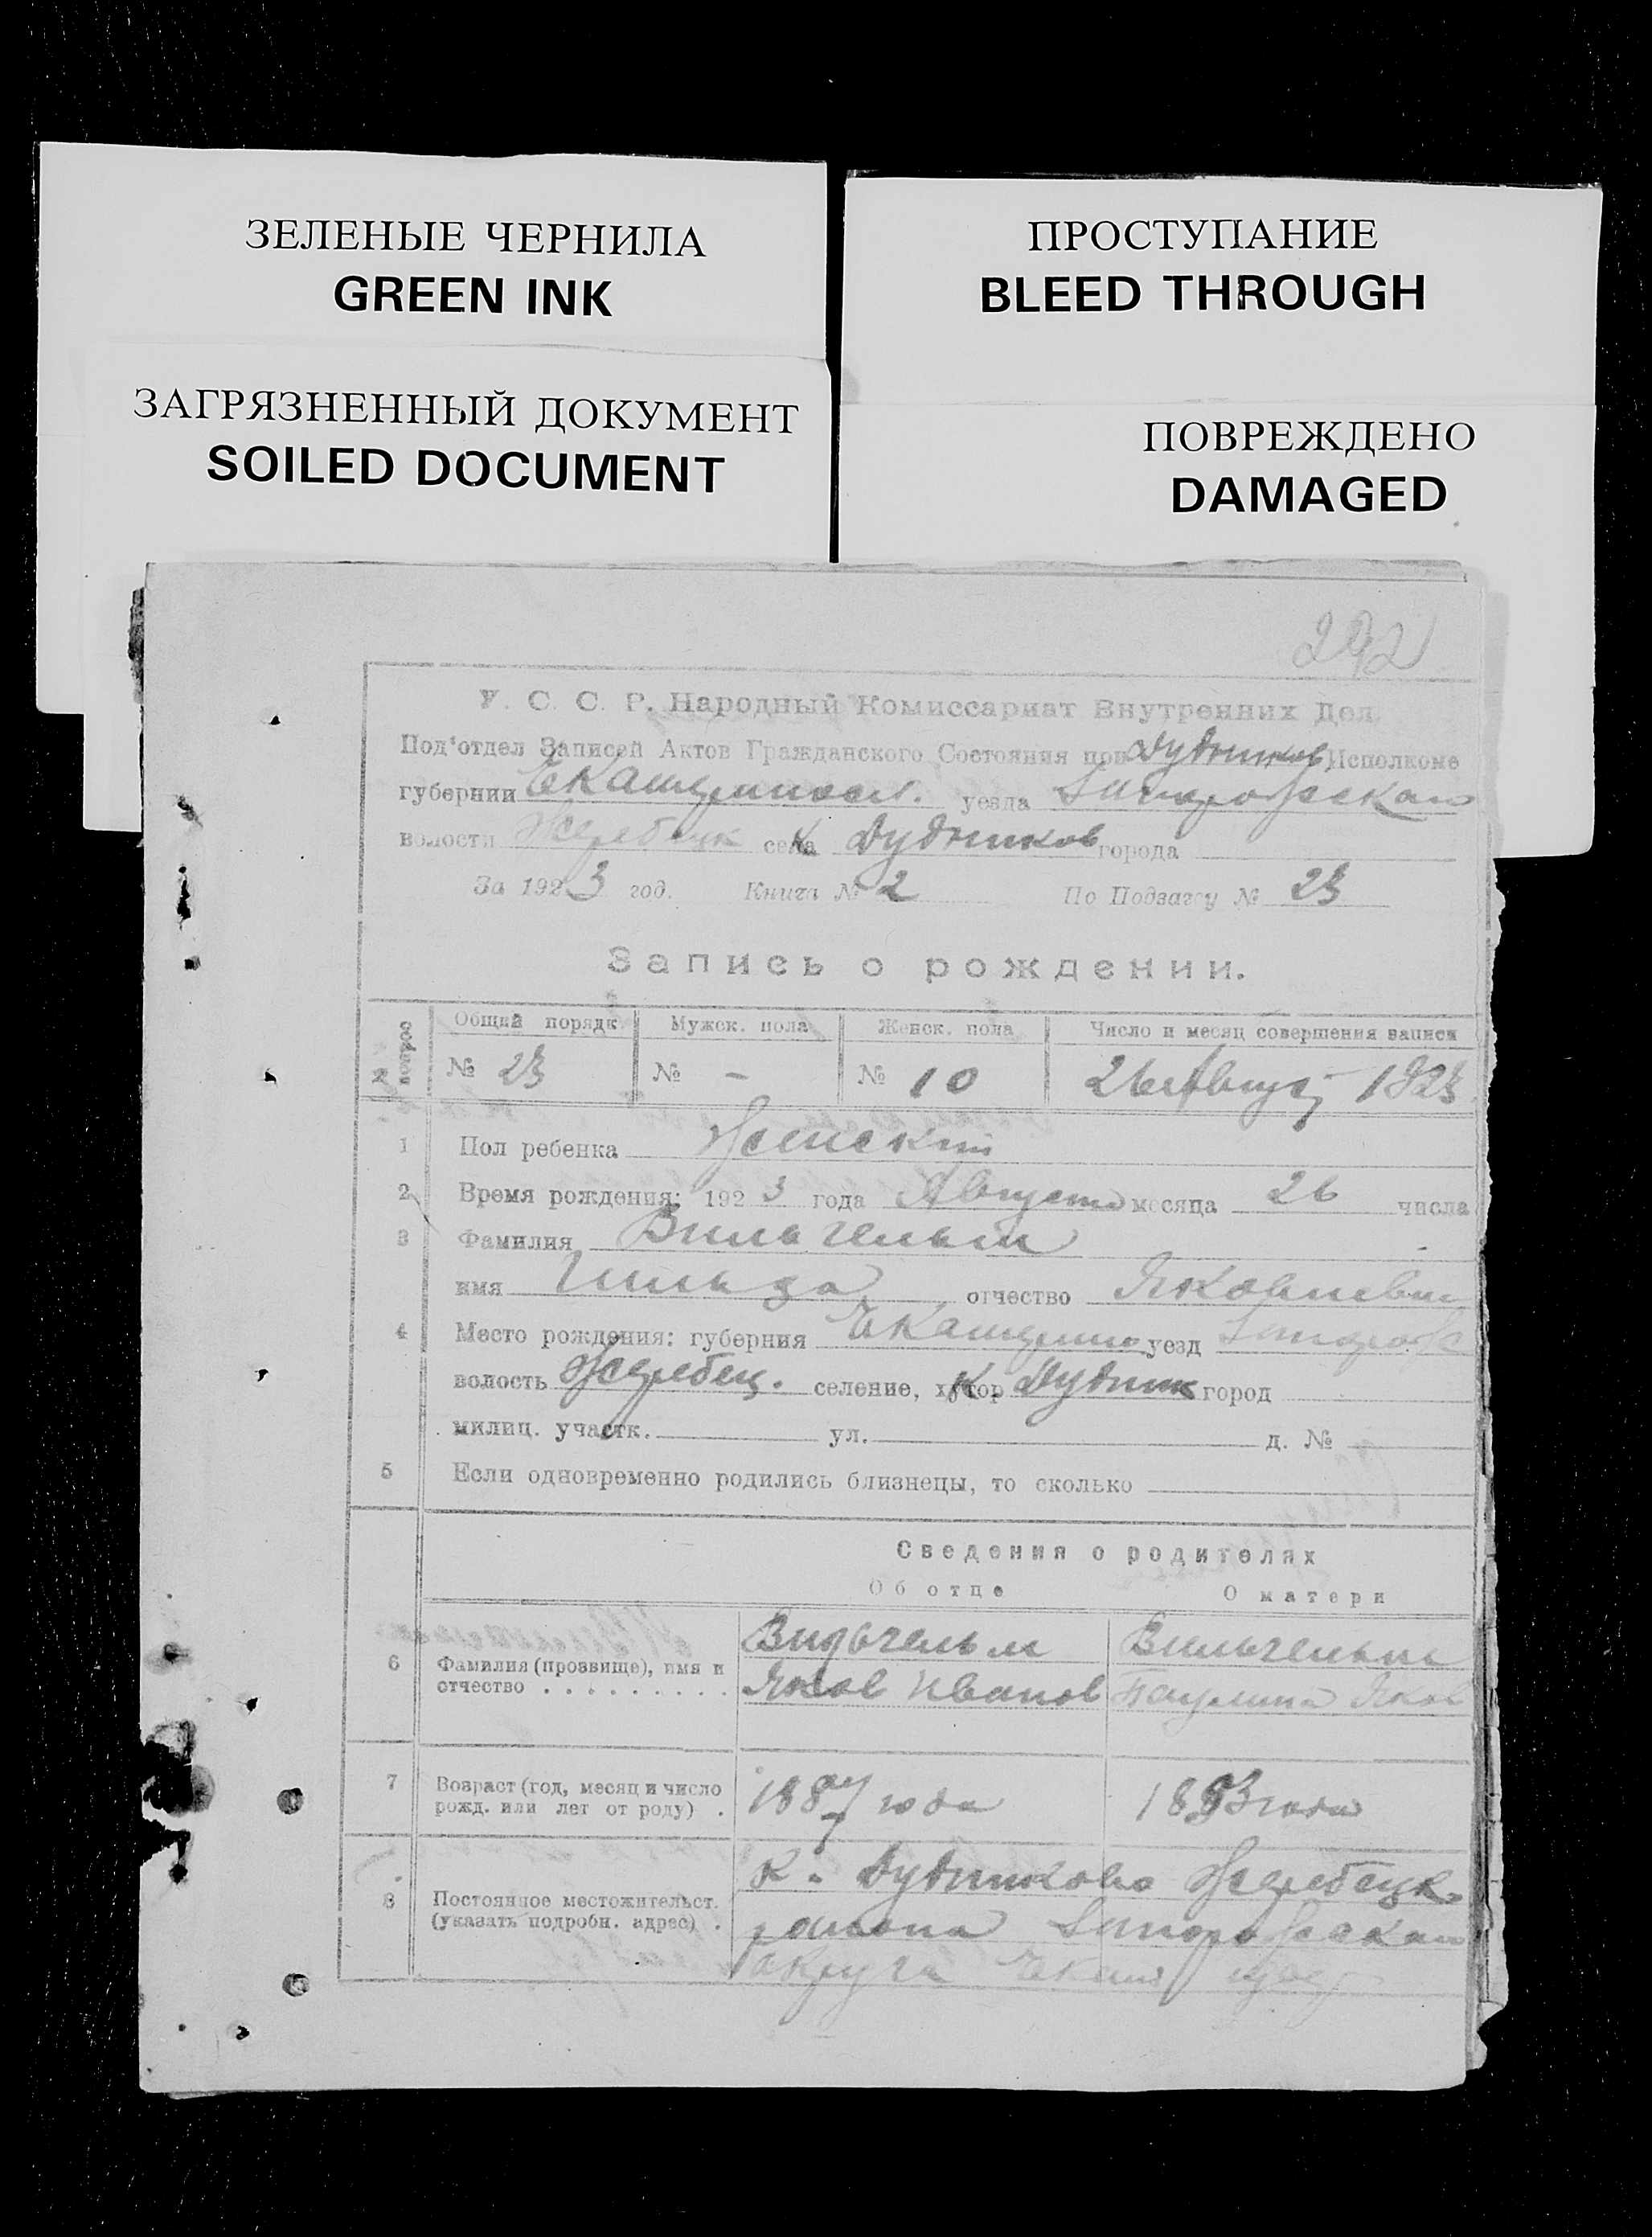 ЗЕЛЕНЫЕ ЧЕРНИЛА
GREEN INK
ЗАГРЯЗНЕННЫЙ ДОКУМЕНТ
SOILED DOCUMENT
ПРОСТУПАНИЕ
BLEED THROUGH
ПОВРЕЖДЕНО
DAMAGED
292
У. С. С. Р. Народный Комиссариат Внутренних Дел.
Под'отдел Записей Актов Гражданского Состояния при Дудников Исполкоме
губернии Екатеринослав. уезда Запорожскаго
волости Жеребецк села Дудников города
За 1923 год. Книга № 2 По Подзагсу № 23
Запись о рождении.
№ вопрос Общий порядк Мужск. пола Женск. пола Число и месяц совершения записи
№ 23 № - № 10 26 Август 1923
1 Пол ребенка Женский
2 Время рождения: 1923 года Августа месяца 26 числа
3 Фамилия Вильгельм
имя Гильда отчество Яковлевна
4 Место рождения: губерния Екатерино уезд Запорож
волость Жеребец. селение, хутор К. Дудник город
милиц. участк. ул. д. №
5 Если одновременно родились близнецы, то сколько
Сведения о родителях
Об отце О матери
6 Фамилия (прозвище), имя и отчество . . . . . . . . .
Вильгельм
Яков Иванов
Вильгельм
Паулина Яков
7 Возраст (год, месяц и число рожд. или лет от роду) .
1887 года
1893 года
8 Постоянное местожительст. (указать подробн. адрес) .
К. Дудниково Жеребецк.
района Запорожскаго
округа Екат губер